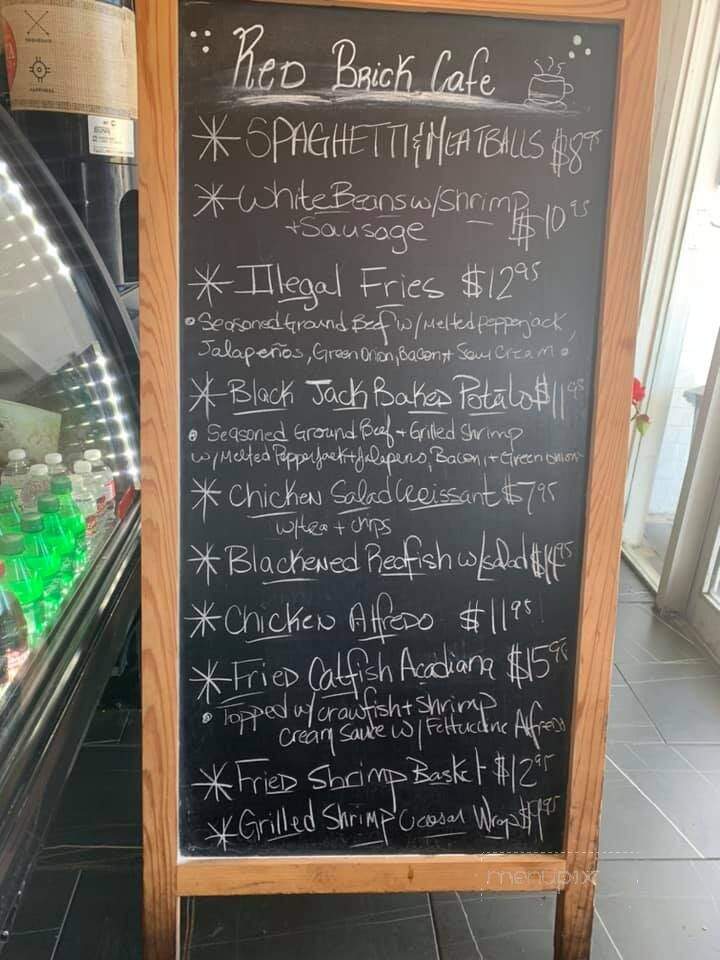 Red Brick Cafe
SPAGHETTI & MEATBALLS $8.95
White Beans w/Shrimp
+ Sausage $10.95
Illegal Fries $12.95
• Seasoned Ground Beef w/ Melted Pepperjack,
Jalapeños, Green Onion, Bacon + Sour Cream.
Black Jack Baked Potato $11.95
• Seasoned Ground Beef + Grilled Shrimp
w/ Melted Pepperjack + Jalapeno, Bacon, + Green onion
Chicken Salad Croissant $7.95
w/tea + chips
Blackened Redfish w/salad $14.95
Chicken Alfredo $11.95
Fried Catfish Acadiana $15.95
• Topped w/ crawfish + Shrimp
cream sauce w/ Fettuccine Alfredo
Fried Shrimp Basket $12.95
Grilled Shrimp Wrap $9.95
menupix